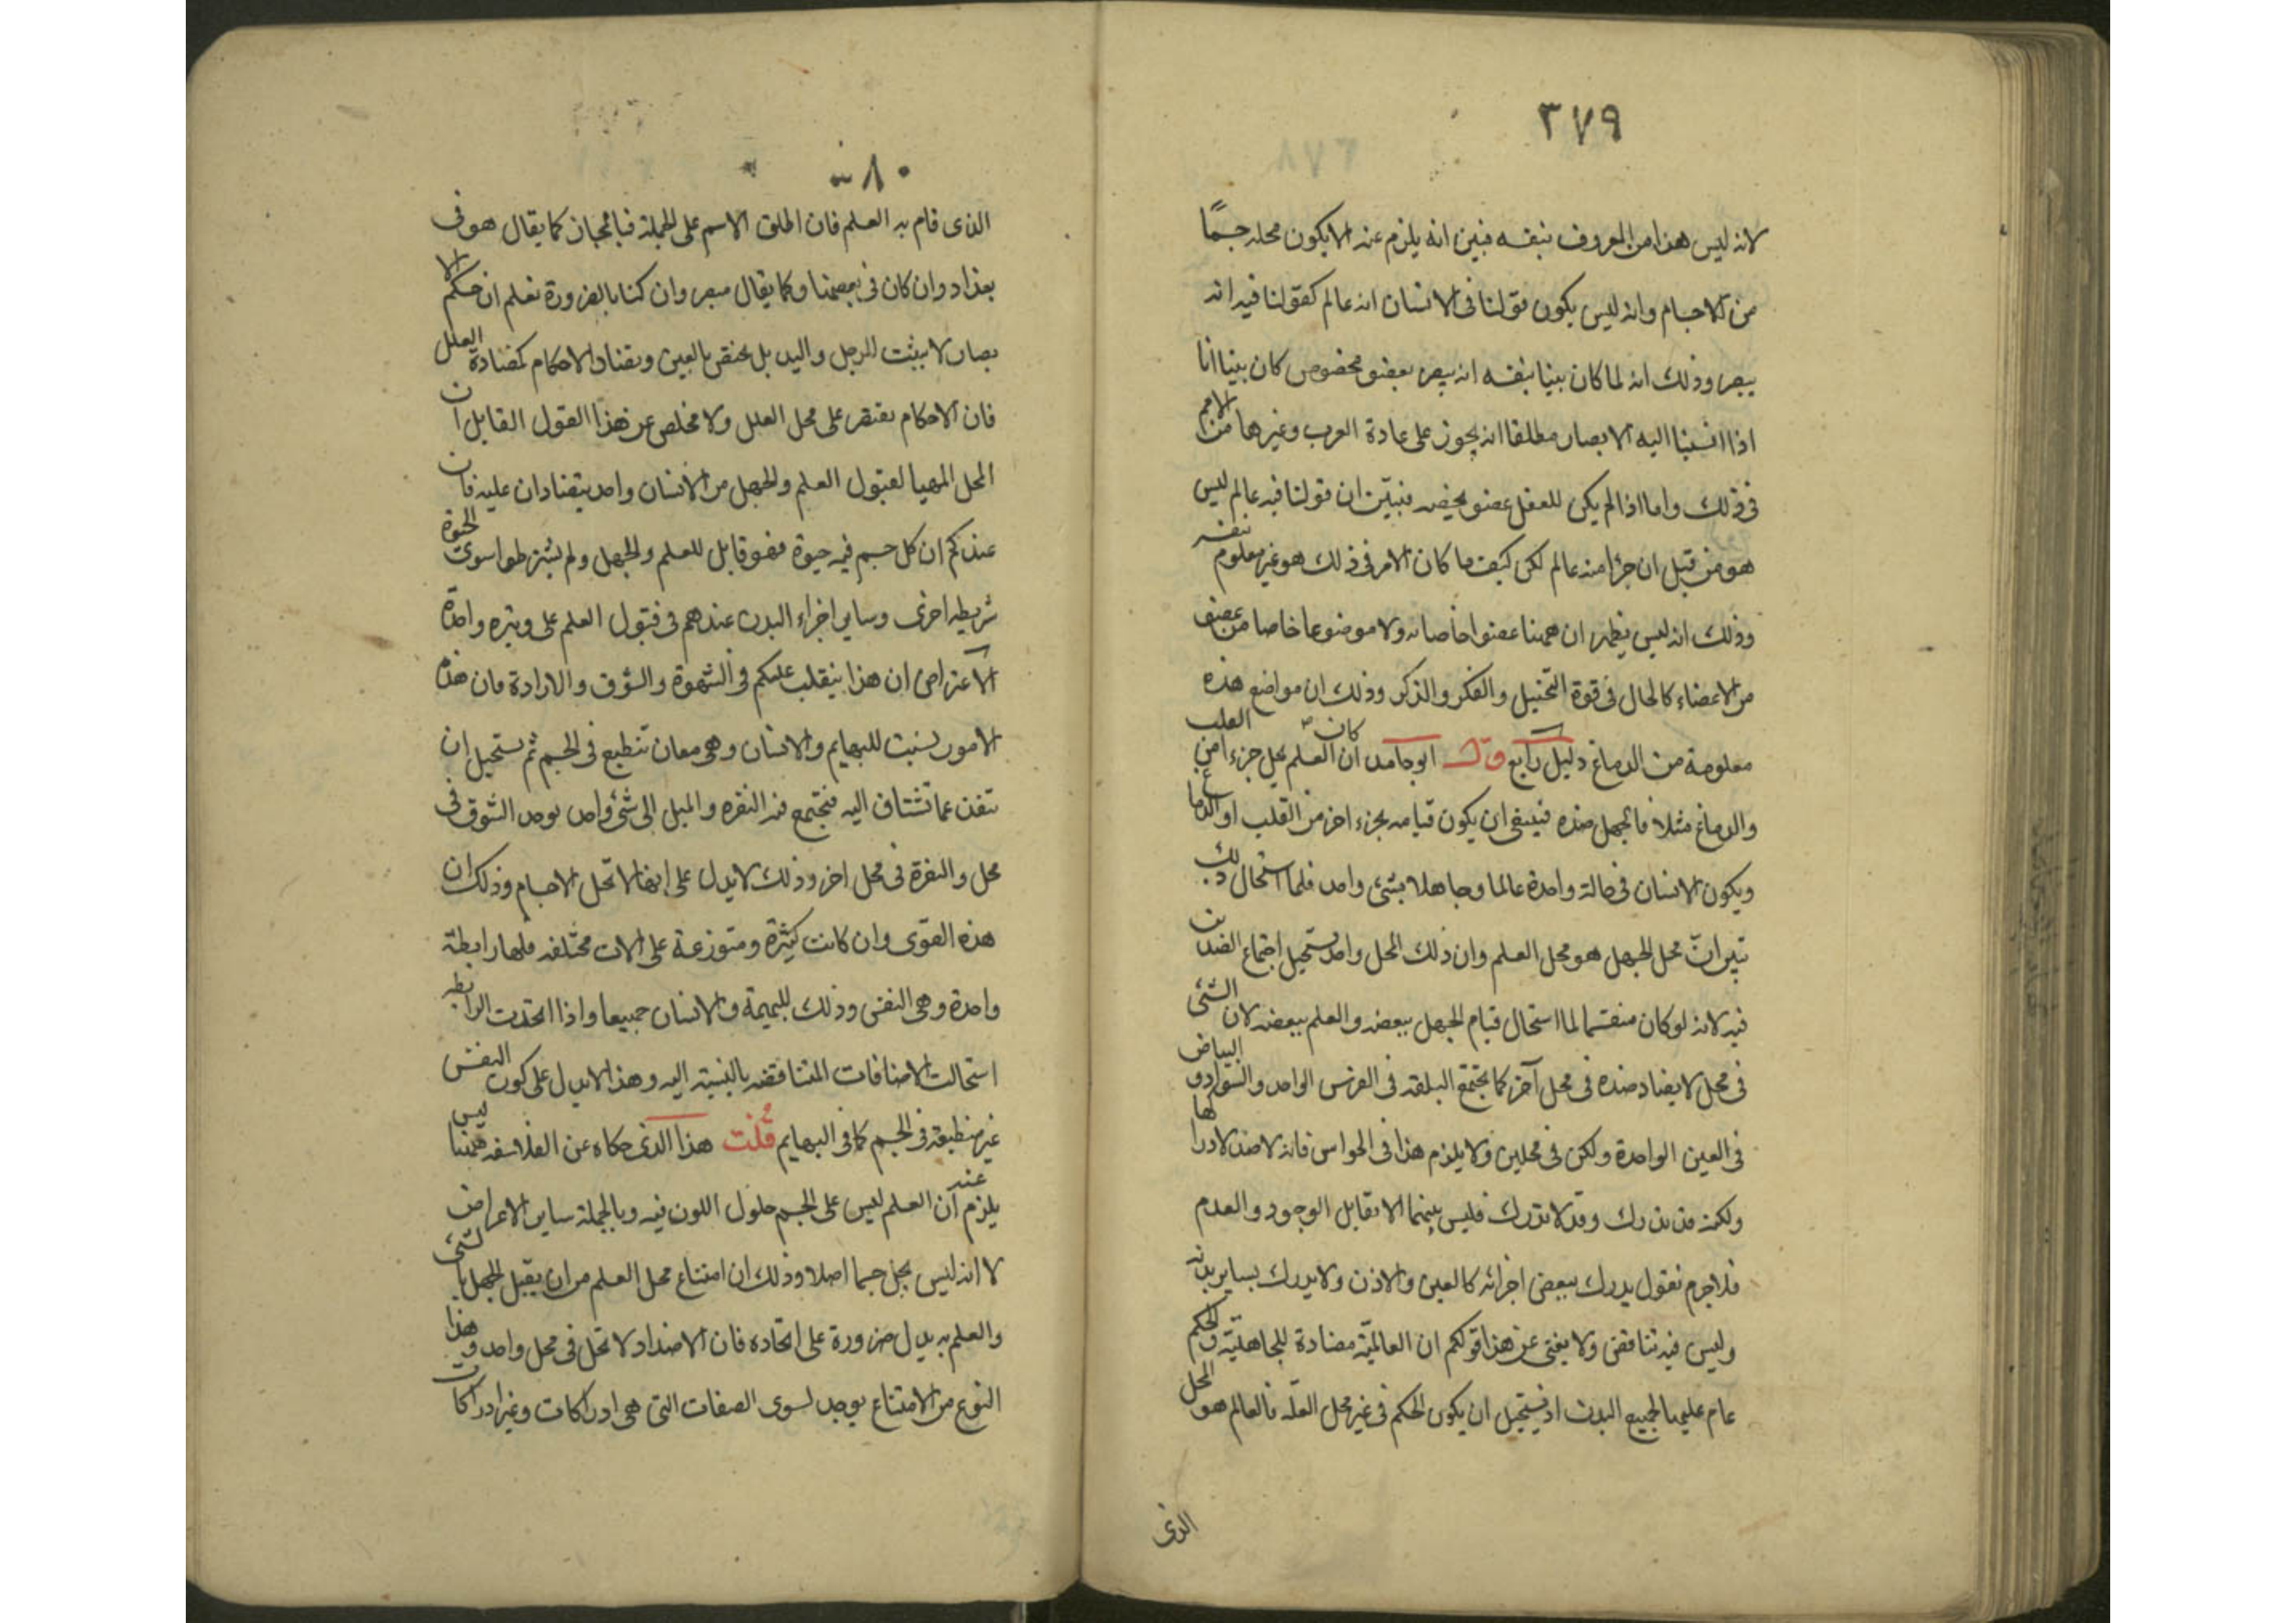 ٣٧٩
لانه ليس هذا من المعروف بنفسه فبين انه يلزم عنه الا يكون محله جسمًا
من الاجسام وانه ليس يكون قولنا فى الانسان انه عالم كقولنا فيه انه
يبصر وذلك انه لما كان بينا بنفسه انه يبصر بعضو مخصوص كان بينا انا
اذا انسبنا اليه الابصار مطلقا انه يجوز على عادة العرب وغيرها من الامم
فى ذلك واما اذا لم يكن للعقل عضو يخصه فبيّن ان قولنا فيه عالم ليس
هو من قبل ان جزا منه عالم لكن كيف ما كان الامر فى ذلك هو غير معلوم بنفسه
وذلك انه ليس يظهر ان ههنا عضوا خاصا به ولا موضوعا خاصا من عضو
من الاعضاء كالحال فى قوة التخييل والفكر والذكر وذلك ان مواضع هذه
معلومة من الدماغ دليل رابع قال ابو حامد ان كان العلم يحل جزءا من القلب
والدماغ مثلا فالجهل ضده فينبغى ان يكون قيامه بجزء اخر من القلب او الدماغ
ويكون الانسان فى حالة واحدة عالما وجاهلا بشئ واحد فلما استحال ذلك
تبين انّ محل الجهل هو محل العلم وان ذلك المحل واحد يستحيل اجتماع الضدين
فيه لانه لو كان منقسما لما استحال قيام الجهل ببعضه والعلم ببعضه لان الشئ
فى محل لا يضاد ضده فى محل آخر كما يجتمع البلقه فى الفرس الواحد والسواد و البياض
فى العين الواحدة ولكن فى محلين ولا يلزم هذا فى الحواس فانه لا ضد لادراكها
ولكنه قد يدرك وقد لا يدرك فليس بينهما الا تقابل الوجود والعدم
فلا جرم نقول يدرك ببعض اجزائه كالعين والاذن ولا يدرك بساير بدنه
وليس فيه تناقض ولا يغنى عن هذا قولكم ان العالميّة مضادة للجاهليّة والحكم
عام عليها لجميع البدن اذ يستحيل ان يكون الحكم فى غير محل العلّة فالعالم هو المحل
الذى
٣٨٠
الذى قام به العلم فان اطلق الاسم على الجملة فبالمجاز كما يقال هو فى
بغداد وان كان فى بعضها وكما يقال مبصر وان كنا بالضرورة نعلم ان حكم الا
بصار لا يثبت للرجل واليد بل يختص بالعين وتضاد الاحكام كتضادة العلل
فان الاحكام تقتصر على محل العلل ولا مخلص عن هذا القول القايل ان
المحل المهيا لقبول العلم والجهل من الانسان واحد يتضادان عليه فان
عندكم ان كل جسم فيه حيوة فهو قابل للعلم والجهل ولم يشترطوا سوى الحيوة
شريطه اخرى وساير اجزاء البدن عندهم فى قبول العلم على وتيره واحدة
الاعتراض ان هذا ينقلب عليكم فى الشهوة والشوق والارادة فان هذه
الامور تثبت للبهايم والانسان وهى معان تنطبع فى الجسم ثم يستحيل ان
تنفر عما تشتاق اليه فتجتمع فيه النفره والميل الى شئ واحد بوجد الشوق فى
محل والنفرة فى محل اخر وذلك لا يدل على انها لا تحل الاجسام وذلك ان
هذه القوّى وان كانت كثيرة ومتوزعة على الات مختلفه فلها رابطة
واحدة وهى النفس وذلك للبهيمة والانسان جميعا واذا اتحدت الرابطه
استحالت الاضافات المتناقضه بالنسبة اليه وهذا لا يدل على كون النفس
غير منطبعة فى الجسم كما فى البهايم قلت هذا الذى حكاه عن الفلاسفه ههنا ليس
يلزم عنه ان العلم ليس على الجسم حلول اللون فيه وبالجملة ساير الاعراض
لا انه ليس يحل جسما اصلا وذلك ان امتناع محل العلم من ان يقبل الجهل بالشئ
والعلم به يدل ضرورة على اتحاده فان الاضداد لا تحل فى محل واحد وهذا
النوع من الامتناع يوجد لسوى الصفات التى هى ادراكات وغير ادراكات